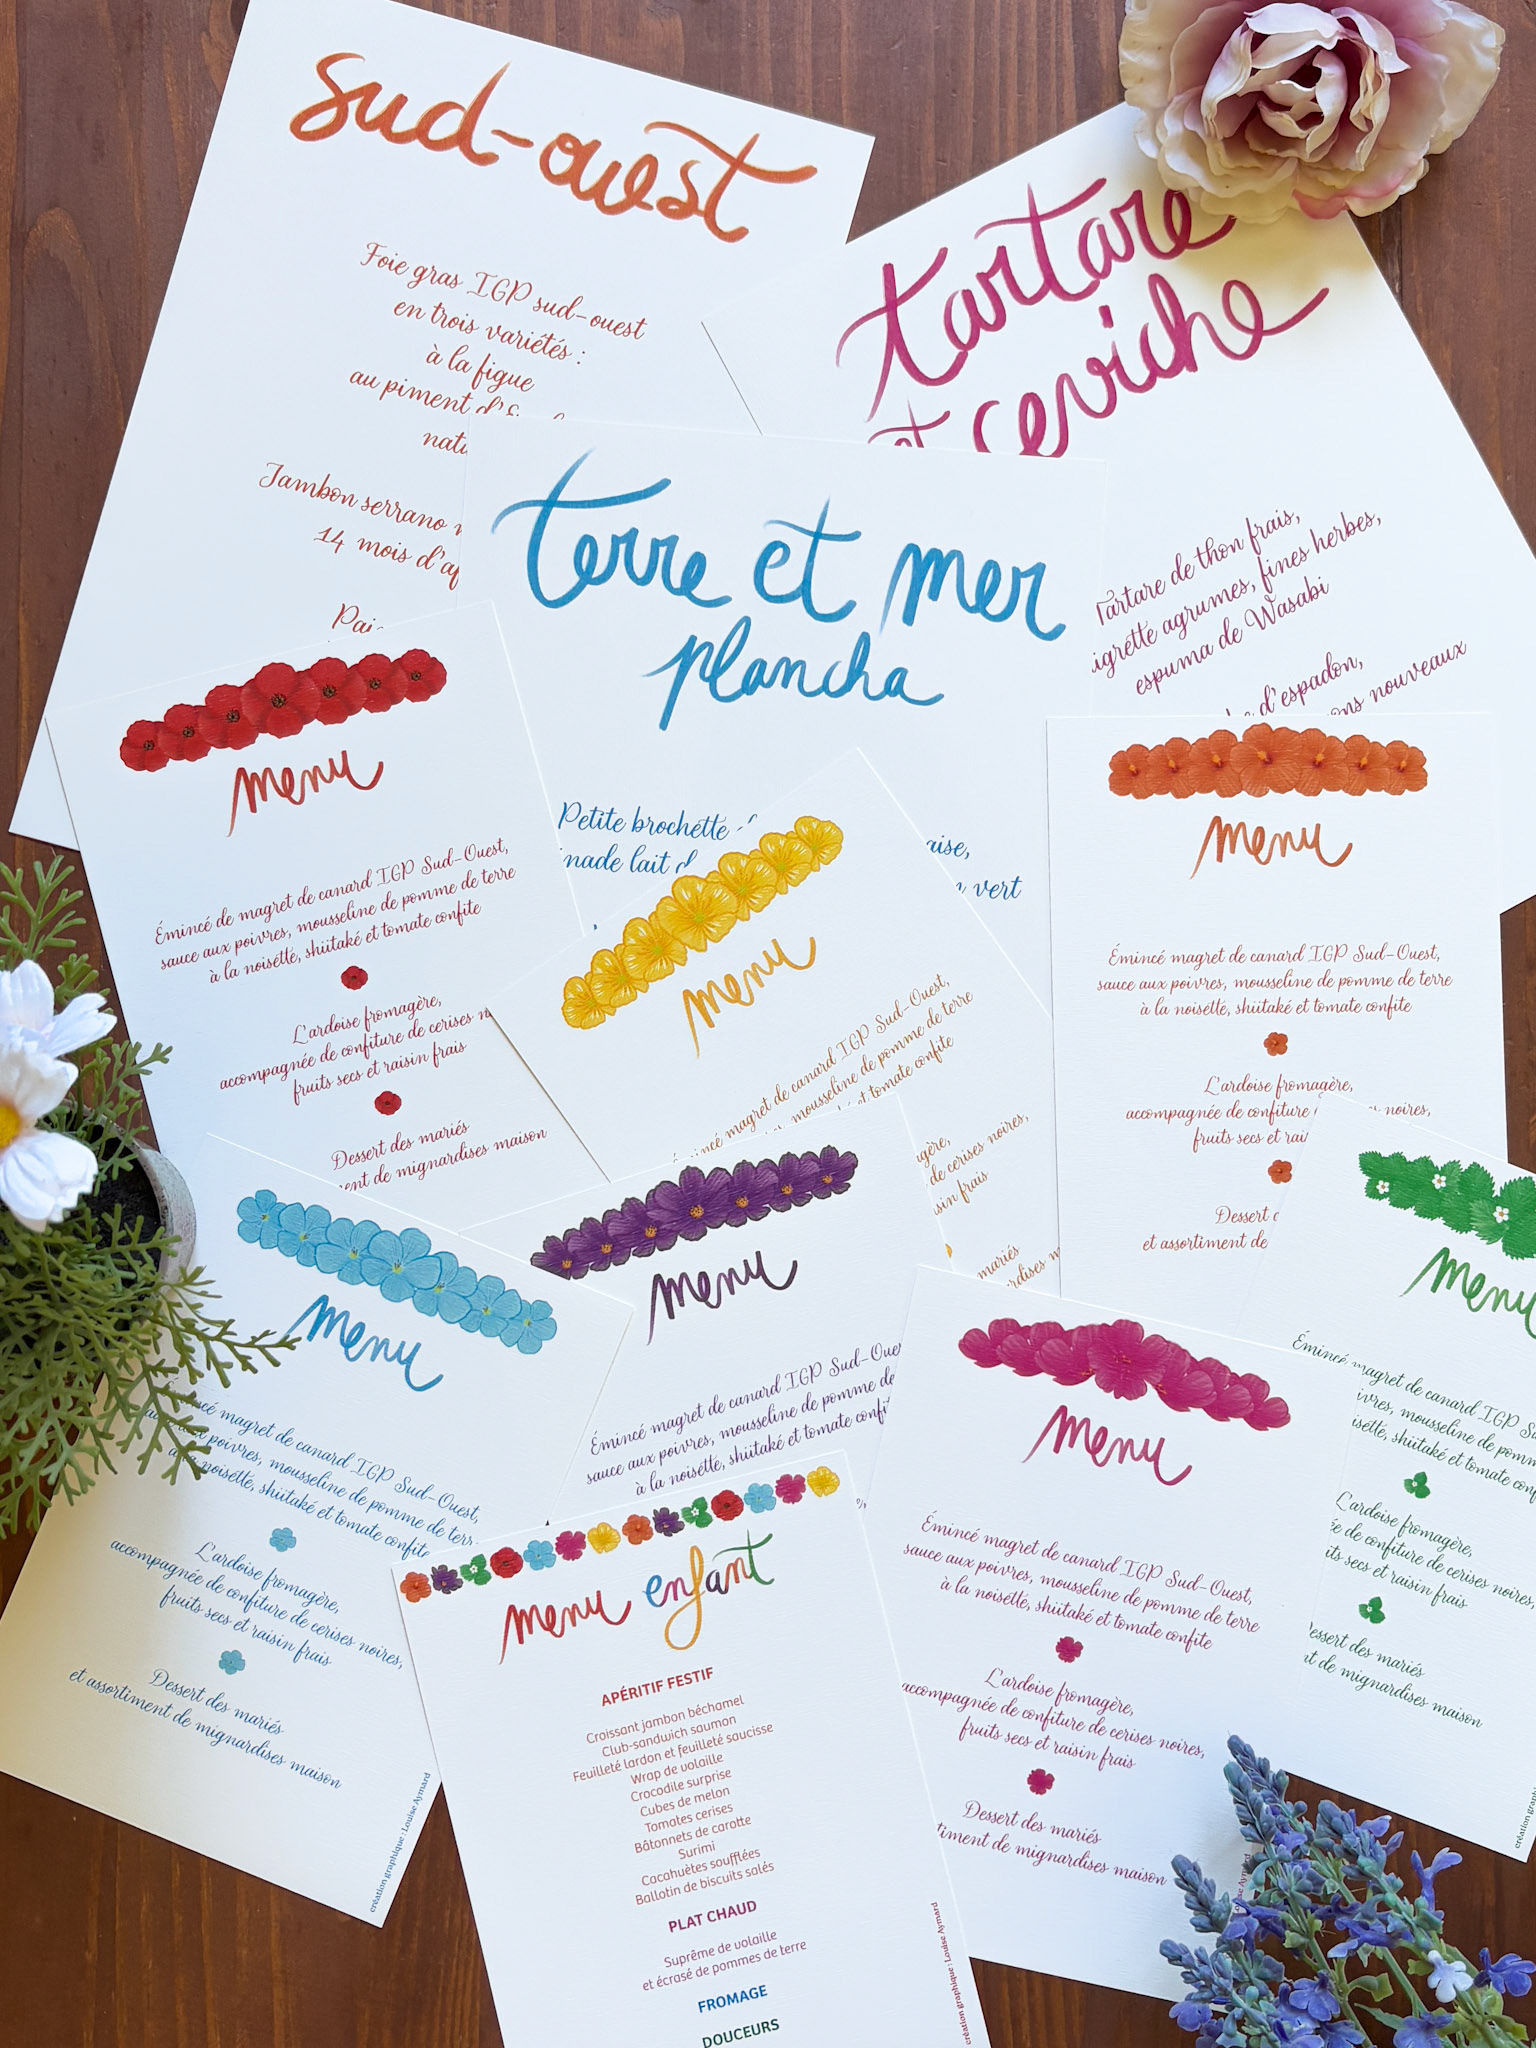 sud-ouest
Foie gras IGP sud-ouest
en trois variétés :
à la figue
au piment
Jambon serrano
14 mois
tartare
et ceviche
Tartare de thon frais,
agrumes, fines herbes,
espuma de Wasabi
d'espadon,
nouveaux
terre et mer
plancha
Petite brochette
lait
vert
menu
Émincé de magret de canard IGP Sud-Ouest,
sauce aux poivres, mousseline de pomme de terre
à la noisette, shiitaké et tomate confite
L'ardoise fromagère,
accompagnée de confiture de cerises
fruits secs et raisin frais
Dessert des mariés
de mignardises maison
menu
magret de canard IGP Sud-Ouest,
mousseline de pomme de terre
et tomate confite
de cerises noires,
frais
mariés
menu
Émincé magret de canard IGP Sud-Ouest,
sauce aux poivres, mousseline de pomme de terre
à la noisette, shiitaké et tomate confite
L'ardoise fromagère,
accompagnée de confiture noires,
fruits secs et
Dessert
et assortiment de
menu
Émincé magret de canard IGP Sud-Ouest,
poivres, mousseline de pomme de
noisette, shiitaké et tomate confite
L'ardoise fromagère,
accompagnée de confiture de cerises noires,
fruits secs et raisin frais
Dessert des mariés
et assortiment de mignardises maison
création graphique : Louise Aymard
menu
Émincé magret de canard IGP
sauce aux poivres, mousseline de pomme de
à la noisette, shiitaké et tomate
menu
Émincé magret de canard IGP Sud-Ouest,
sauce aux poivres, mousseline de pomme de terre
à la noisette, shiitaké et tomate confite
L'ardoise fromagère,
accompagnée de confiture de cerises noires,
fruits secs et raisin frais
Dessert des mariés
de mignardises maison
Aymard
menu
Émincé magret de canard IGP
mousseline de
shiitaké et tomate
L'ardoise fromagère,
de confiture de cerises noires,
secs et raisin frais
des mariés
de mignardises maison
création
menu enfant
APÉRITIF FESTIF
Croissant jambon béchamel
Club-sandwich saumon
Feuilleté lardon et feuilleté saucisse
Wrap de volaille
Crocodile surprise
Cubes de melon
Tomates cerises
Bâtonnets de carotte
Surimi
Cacahuètes soufflées
Ballotin de biscuits salés
PLAT CHAUD
Suprême de volaille
et écrasé de pommes de terre
FROMAGE
DOUCEURS
création graphique : Louise Aymard